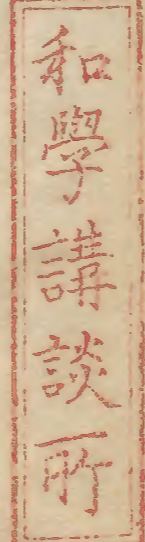 和學講談所